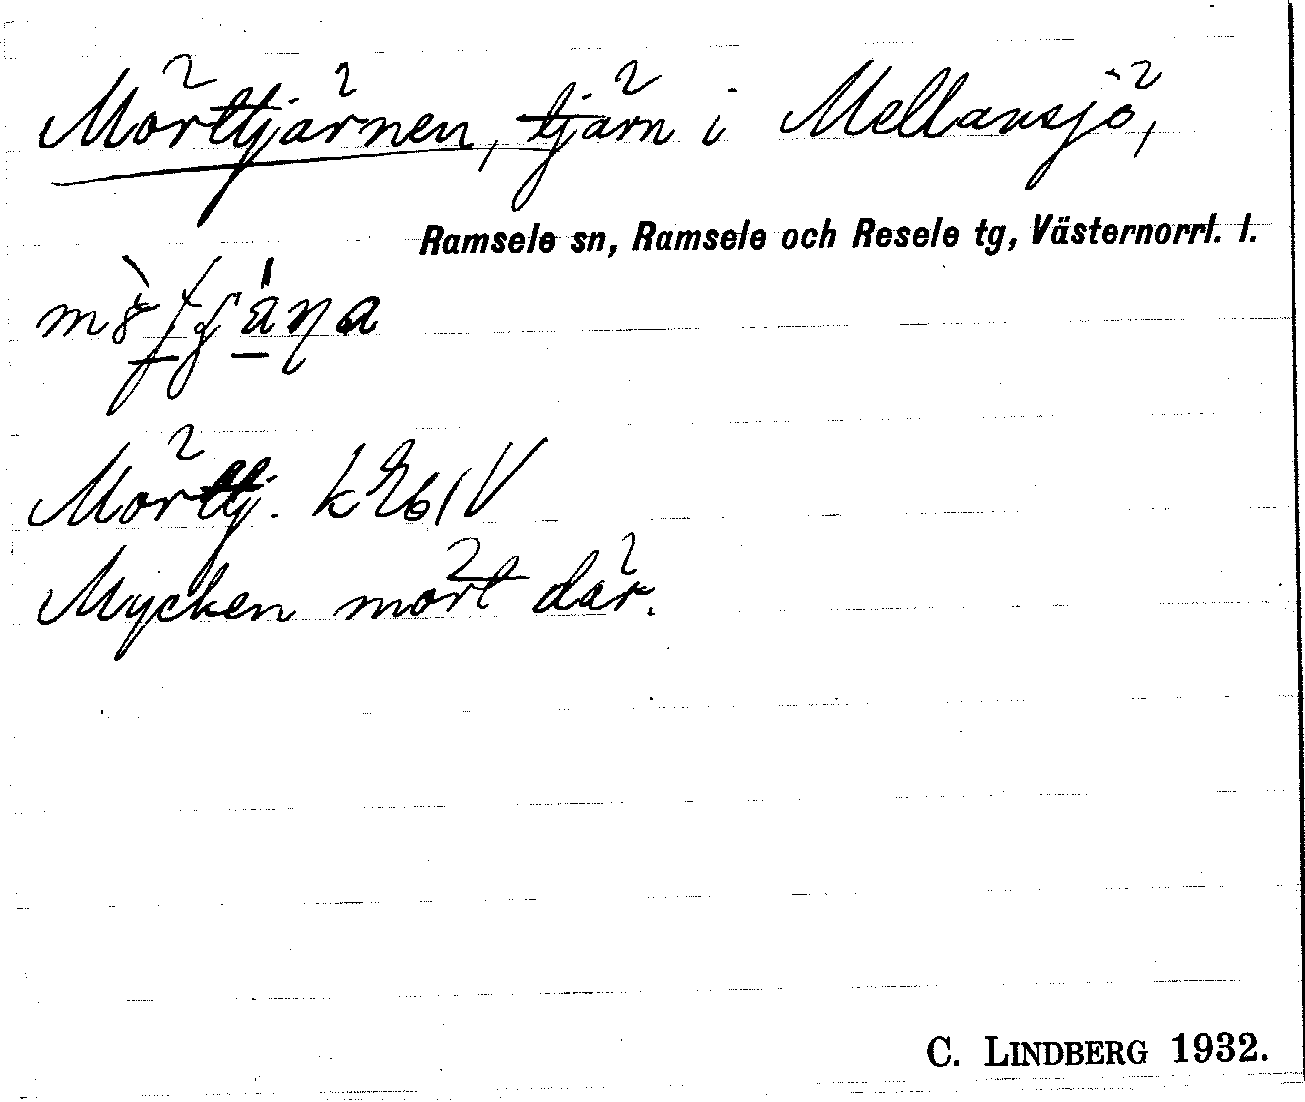 Mörttjärnen, tjärn i Mellansjö,
Ramsele sn, Ramsele och Resele tg, Västernorrl. l.
Mörttj. k
Mycken mört där.
C. LINDBERG 1932.